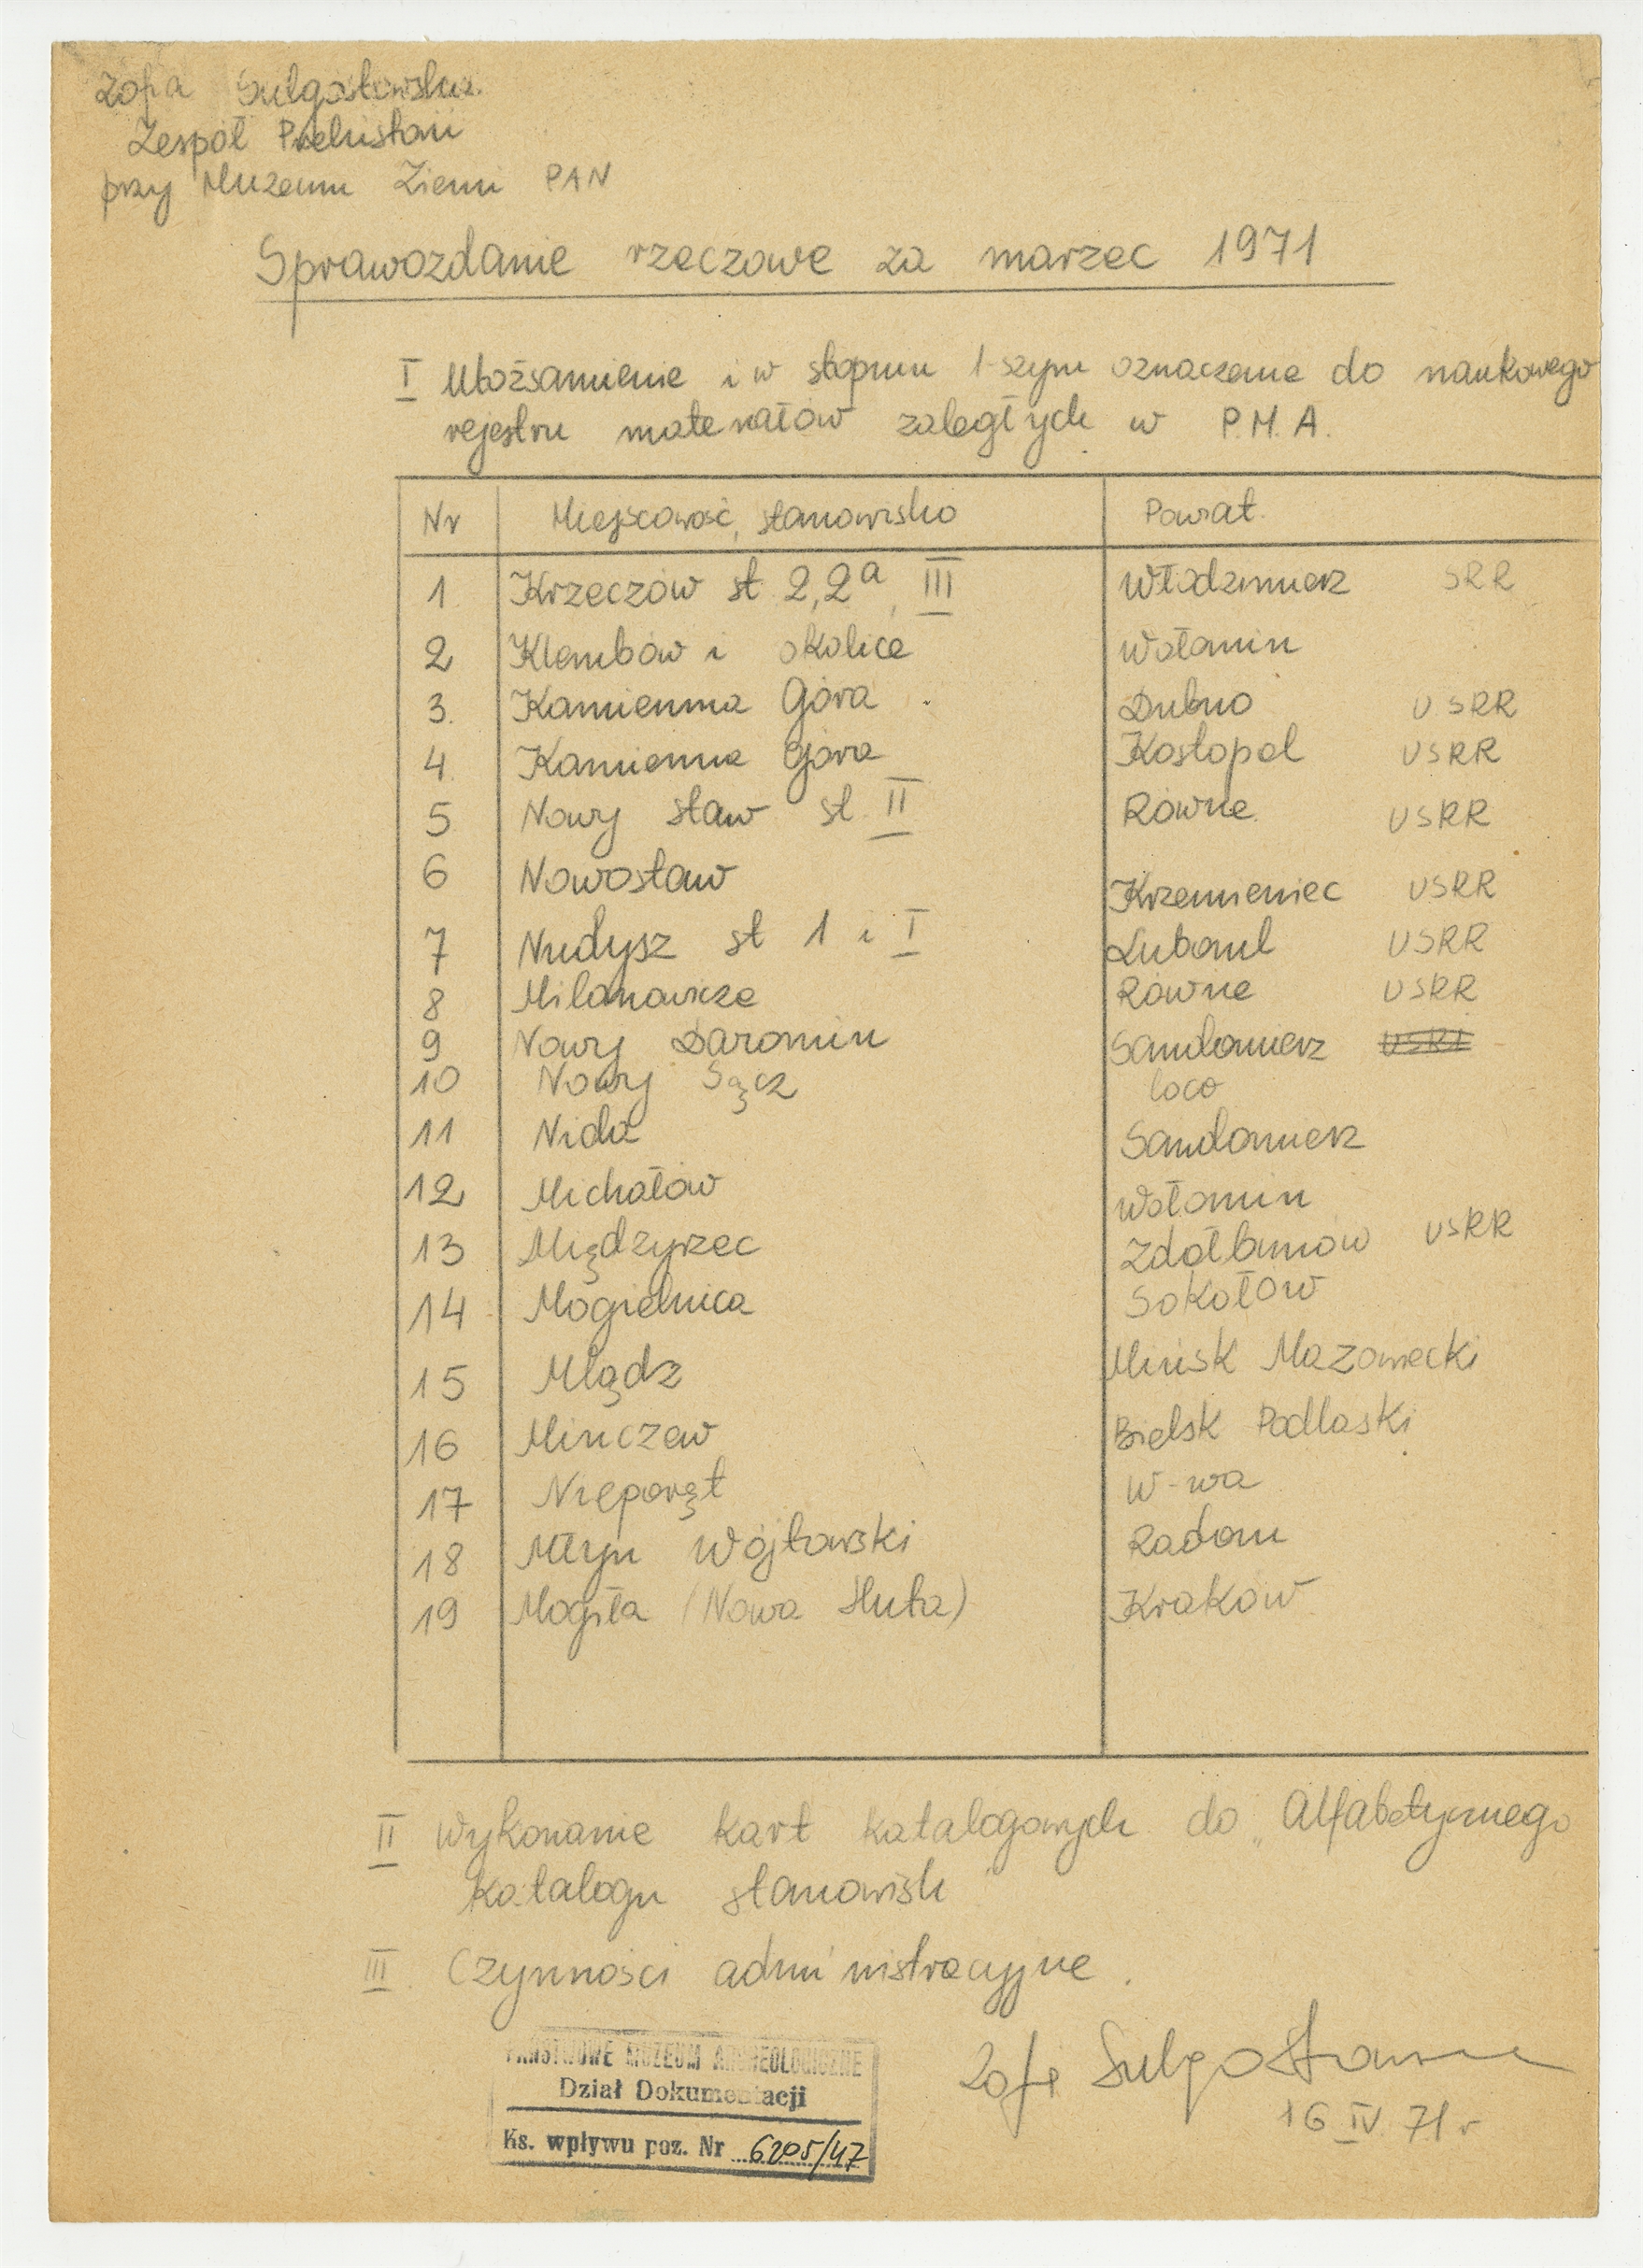 Zofia Sulgostowska
Zespół Prehistorii
przy Muzeum Ziemi PAN
Sprawozdanie rzeczowe za marzec 1971
I Utożsamienie i w stopniu 1-szym oznaczenie do naukowego
rejestru materiałów zaległych w P.M.A.
Nr Miejscowość, stanowisko Powiat
1 Krzeczów st. 2, 2a, III Włodzimierz SRR
2 Klembów i okolice Wołomin
3. Kamienna Góra Dubno USRR
4 Kamienna Góra Kostopol USRR
5 Nowy staw st. II Równe USRR
6 Nowostaw Krzemieniec USRR
7 Nudysz st 1 i I Luboml USRR
8 Milanowicze Równe USRR
9 Nowy Daromin Sandomierz
10 Nowy Sącz loco
11 Nida Sandomierz
12 Michałów Wołomin
13 Międzyrzec Zdołbunów USRR
14 Mogielnica Sokołów
15 Mlądz Mińsk Mazowiecki
16 Minczew Bielsk Podlaski
17 Nieporęt W-wa
18 Młyn Wójtowski Radom
19 Mogiła (Nowa Huta) Kraków
II Wykonanie kart katalogowych do „Alfabetycznego
katalogu stanowisk"
III. Czynności administracyjne.
PAŃSTWOWE MUZEUM ARCHEOLOGICZNE
Dział Dokumentacji
Ks. wpływu poz. Nr 6205/47
Zofia Sulgostowska
16 IV 71 r